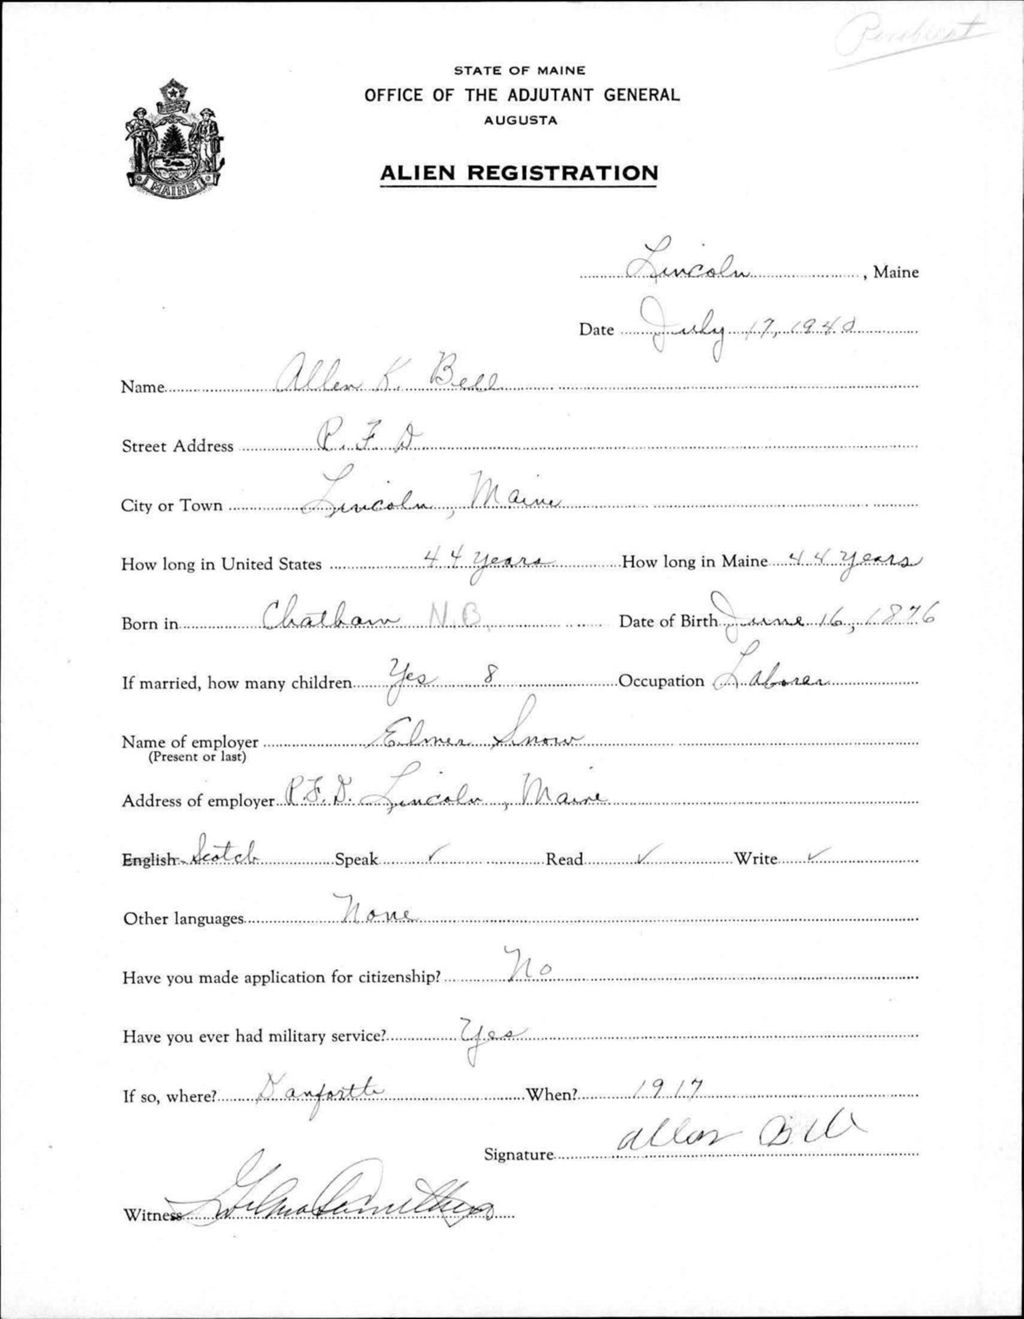 Penobscot
STATE OF MAINE
OFFICE OF THE ADJUTANT GENERAL
AUGUSTA
ALIEN REGISTRATION
MAINE
Lincoln, Maine
Date July 17, 1940
Name Allen K. Bell
Street Address R.F.D
City or Town Lincoln, Maine
How long in United States 44 years How long in Maine 44 years
Born in Chatham N.B. Date of Birth June 16, 1876
If married, how many children Yes 8 Occupation Laborer
Name of employer Elmer Snow
(Present or last)
Address of employer R.F.D. Lincoln, Maine
English Scotch Speak ✓ Read ✓ Write ✓
Other languages None
Have you made application for citizenship? No
Have you ever had military service? Yes
If so, where? Danforth When? 1917
Signature Allen Bell
Witness